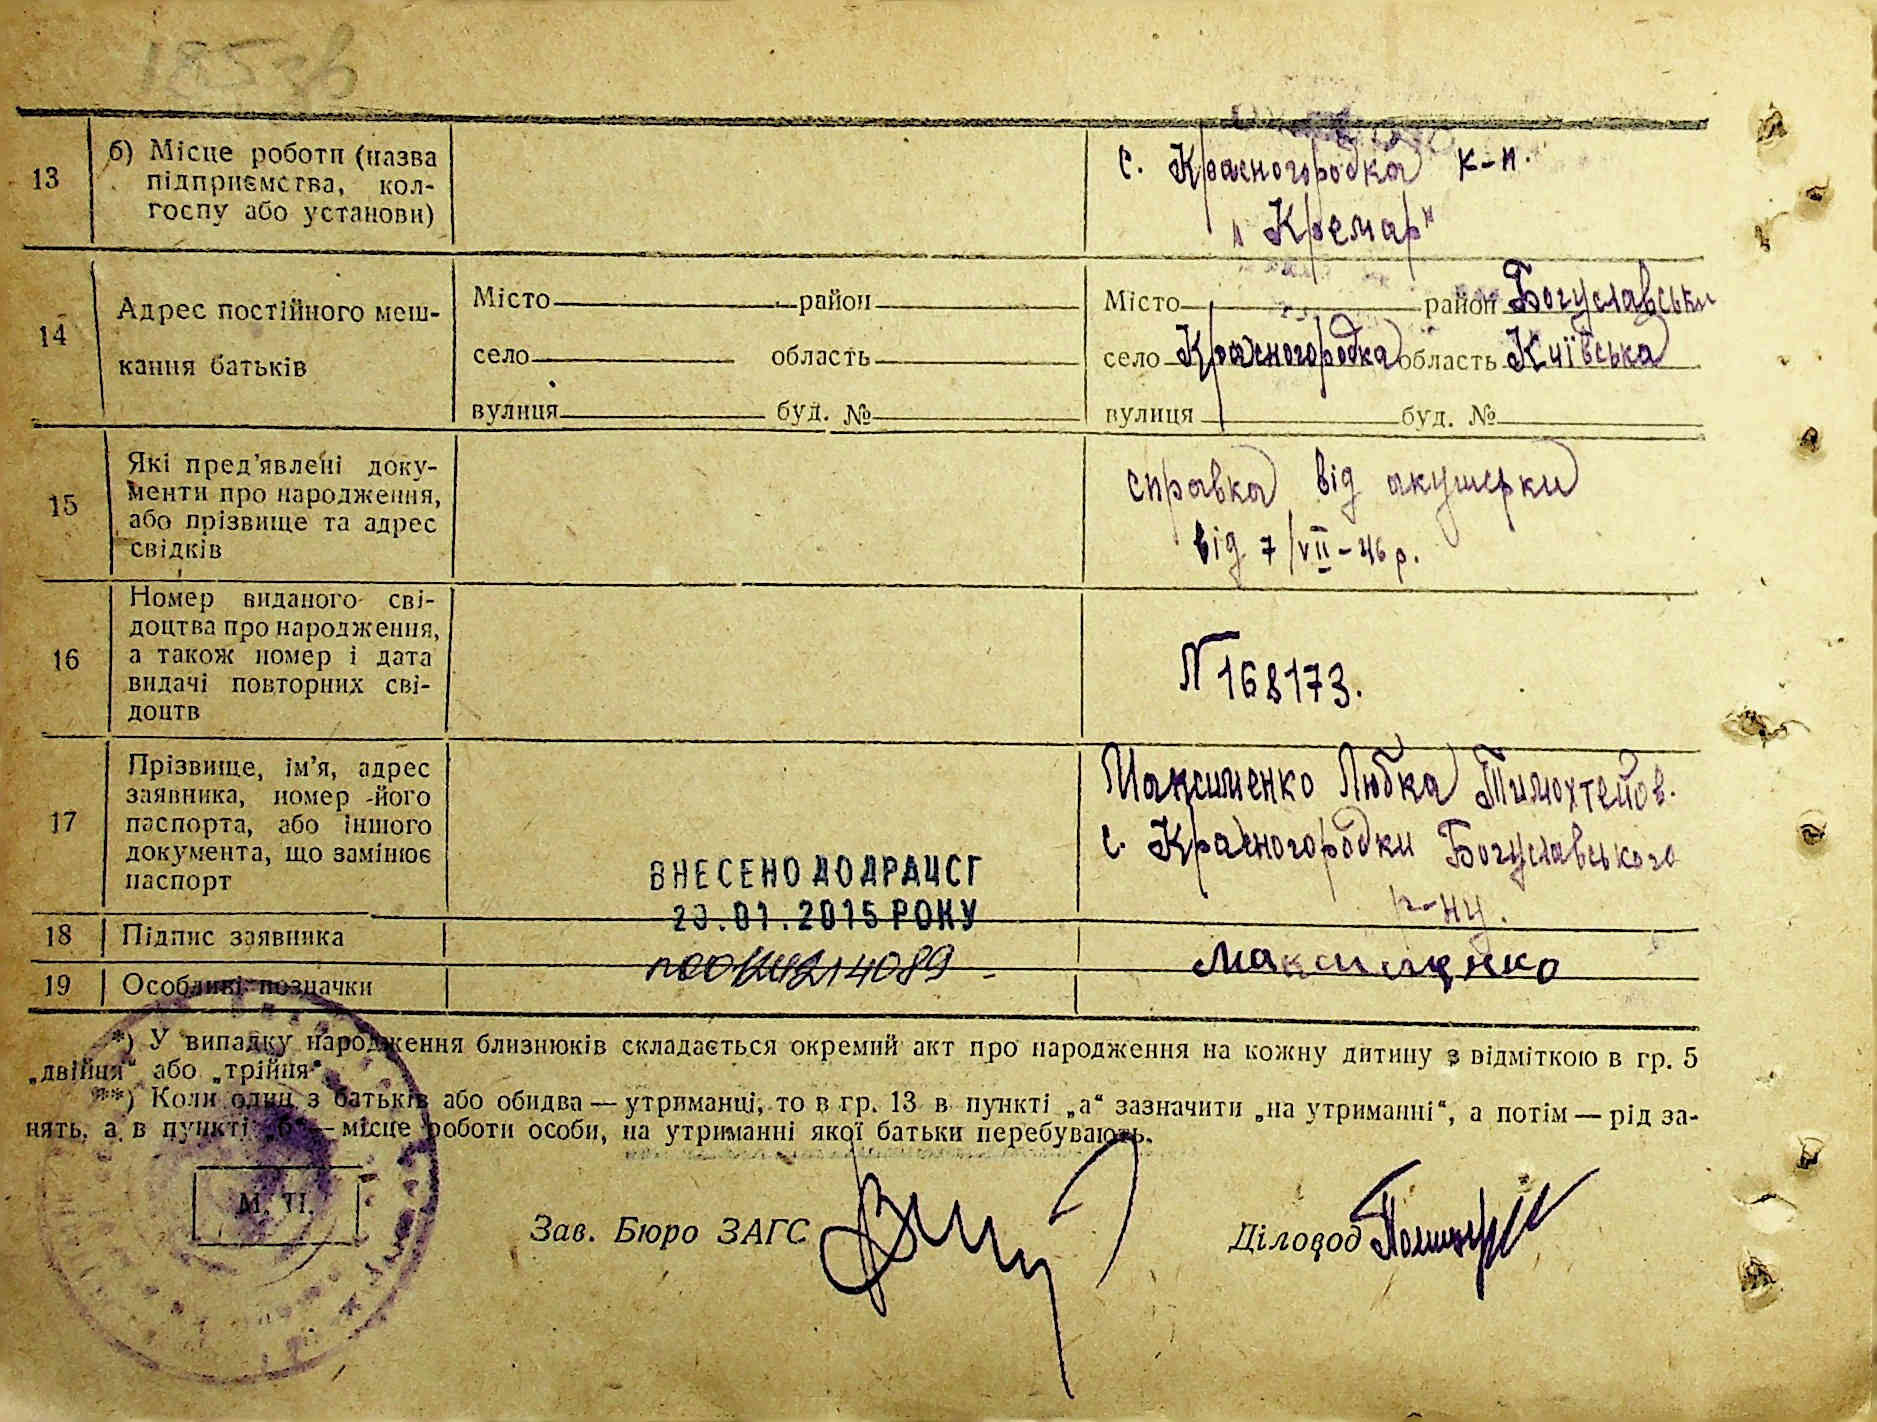 185зв
13
б) Місце роботи (назва
підприємства, кол-
госпу або установи)
с. Красногородка к-п.
„Кремар"
14
Адрес постійного меш-
кання батьків
Місто район
село область
вулиця буд. №
Місто район Богуславськи
село Красногородка область Київська
вулиця буд. №
15
Які пред'явлені доку-
менти про народження,
або прізвище та адрес
свідків
справка від акушерки
від 7/VII-46 р.
16
Номер виданого сві-
доцтва про народження,
а також номер і дата
видачі повторних сві-
доцтв
N 168173.
17
Прізвище, ім'я, адрес
заявника, номер його
паспорта, або іншого
документа, що замінює
паспорт
Максименко Любка Тимохтейов.
с. Красногородки Богуславського
р-ну.
ВНЕСЕНО ДО ДРАЦСГ
23.01.2015 РОКУ
18
Підпис заявника
Максименко
19
Особливі позначки
*) У випадку народження близнюків складається окремий акт про народження на кожну дитину з відміткою в гр. 5
„двійня" або „трійня".
**) Коли один з батьків або обидва — утриманці, то в гр. 13 в пункті „а" зазначити „на утриманні", а потім — рід за-
нять, а в пункті „б" — місце роботи особи, на утриманні якої батьки перебувають.
М. П.
Зав. Бюро ЗАГС
Діловод